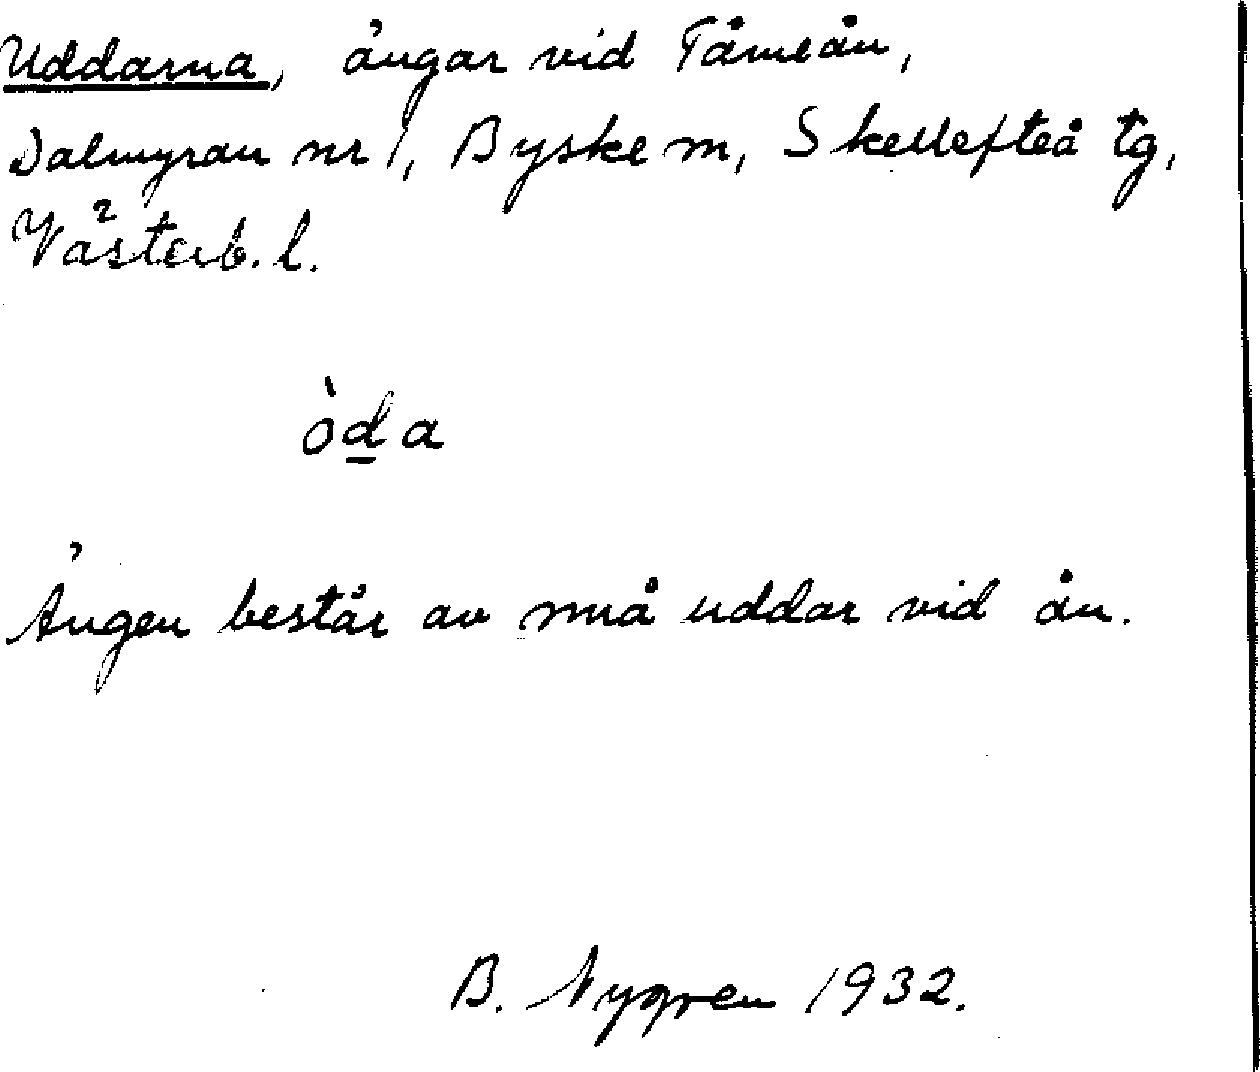 Uddarna, ängar vid Tåmeån,
Dalmyran nr 1, Byske m, Skellefteå tg,
Västerb. l.
òd̲a
Ängen består av små uddar vid ån.
B. Nygren 1932.